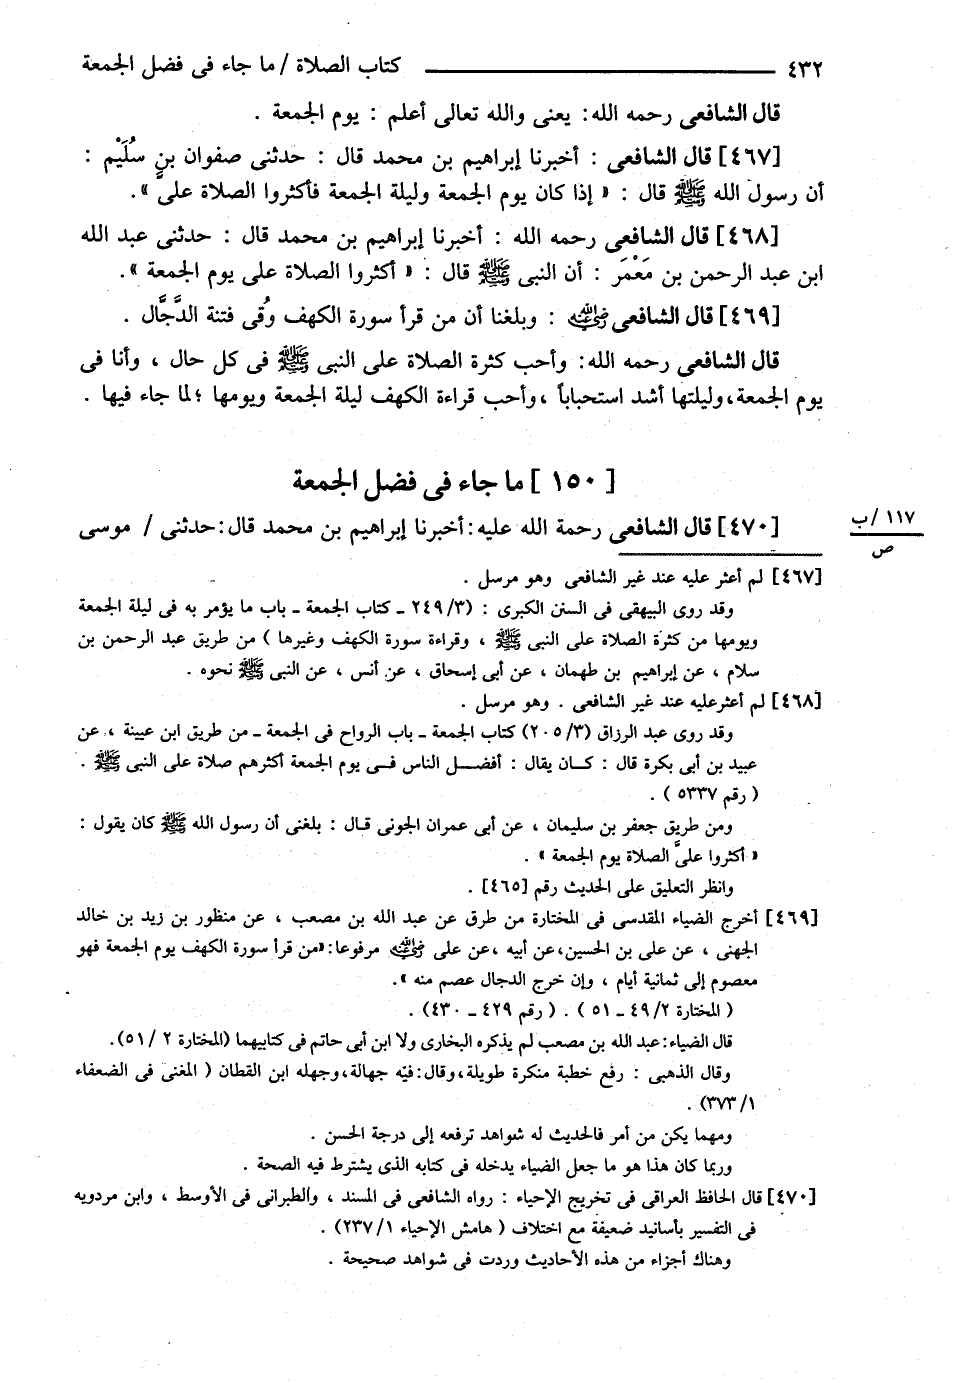 ٤٣٢ ــــــــــــــــ كتاب الصلاة / ما جاء فى فضل الجمعة
قال الشافعى رحمه الله : يعنى والله تعالى أعلم : يوم الجمعة .
[٤٦٧] قال الشافعى : أخبرنا إبراهيم بن محمد قال : حدثنى صفوان بن سُلَيْم :
أن رسول الله ﷺ قال : « إذا كان يوم الجمعة وليلة الجمعة فأكثروا الصلاة علىَّ ».
[٤٦٨] قال الشافعى رحمه الله : أخبرنا إبراهيم بن محمد قال : حدثنى عبد الله
ابن عبد الرحمن بن مَعْمَر : أن النبى ﷺ قال : « أكثروا الصلاة على يوم الجمعة ».
[٤٦٩] قال الشافعى رضي الله عنه : وبلغنا أن من قرأ سورة الكهف وُقى فتنة الدَّجَّال .
قال الشافعى رحمه الله: وأحب كثرة الصلاة على النبى ﷺ فى كل حال ، وأنا فى
يوم الجمعة،وليلتها أشد استحباباً ،وأحب قراءة الكهف ليلة الجمعة ويومها ؛لما جاء فيها .
[ ١٥٠ ] ما جاء فى فضل الجمعة
[٤٧٠] قال الشافعى رحمة الله عليه:أخبرنا إبراهيم بن محمد قال:حدثنى / موسى
١١٧ /ب
ص
[٤٦٧] لم أعثر عليه عند غير الشافعى وهو مرسل .
وقد روى البيهقى فى السنن الكبرى : (٣/ ٢٤٩ ـ كتاب الجمعة ـ باب ما يؤمر به فى ليلة الجمعة
ويومها من كثرة الصلاة على النبى ﷺ ، وقراءة سورة الكهف وغيرها ) من طريق عبد الرحمن بن
سلام ، عن إبراهيم بن طهمان ، عن أبى إسحاق ، عن أنس ، عن النبى ﷺ نحوه .
[٤٦٨] لم أعثرعليه عند غير الشافعى . وهو مرسل .
وقد روى عبد الرزاق (٣/ ٢٠٥) كتاب الجمعة ـ باب الرواح فى الجمعة ـ من طريق ابن عيينة ، عن
عبيد بن أبى بكرة قال : كـان يقال : أفضـل الناس فـى يوم الجمعة أكثرهم صلاة على النبى ﷺ .
( رقم ٥٣٣٧ ) .
ومن طريق جعفر بن سليمان ، عن أبى عمران الجونى قـال : بلغنى أن رسول الله ﷺ كان يقول :
« أكثروا علىَّ الصلاة يوم الجمعة » .
وانظر التعليق على الحديث رقم [٤٦٥] .
[٤٦٩] أخرج الضياء المقدسى فى المختارة من طرق عن عبد الله بن مصعب ، عن منظور بن زيد بن خالد
الجهنى ، عن على بن الحسين،عن أبيه ،عن على رضي الله عنه مرفوعا:«من قرأ سورة الكهف يوم الجمعة فهو
معصوم إلى ثمانية أيام ، وإن خرج الدجال عصم منه ».
( المختارة ٢/ ٤٩ ـ ٥١ ) . ( رقم ٤٢٩ ـ ٤٣٠) .
قال الضياء:عبد الله بن مصعب لم يذكره البخارى ولا ابن أبى حاتم فى كتابيهما (المختارة ٢ /٥١).
وقال الذهبى : رفع خطبة منكرة طويلة،وقال:فيّه جهالة،وجهله ابن القطان ( المغنى فى الضعفاء
١/ ٣٧٣) .
ومهما يكن من أمر فالحديث له شواهد ترفعه إلى درجة الحسن .
وربما كان هذا هو ما جعل الضياء يدخله فى كتابه الذى يشترط فيه الصحة .
[٤٧٠] قال الحافظ العراقى فى تخريج الإحياء : رواه الشافعى فى المسند ، والطبرانى فى الأوسط ، وابن مردويه
فى التفسير بأسانيد ضعيفة مع اختلاف ( هامش الإحياء ١/ ٢٣٧) .
وهناك أجزاء من هذه الأحاديث وردت فى شواهد صحيحة .